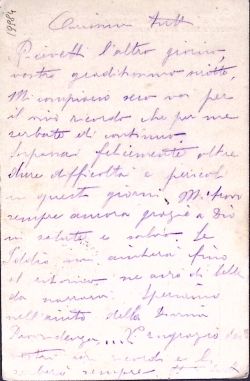 Carissimi tutti
Ricevetti l'altro giorno,
vostro graditissimo scritto,
Mi compiaccio seco voi per
il vivo ricordo che per me
serbate di continuo
Superai felicemente oltre
dure difficoltà e pericoli
in questi giorni. Mi trovo
sempre ancora grazie a Dio
in salute, e
Iddio mi aiuterà fino
al ritorno ne avrò di belle
da narrarvi. Speriamo
nell'aiuto della Divina
Provvidenza.... Vi ringrazio
ricordo e
sempre